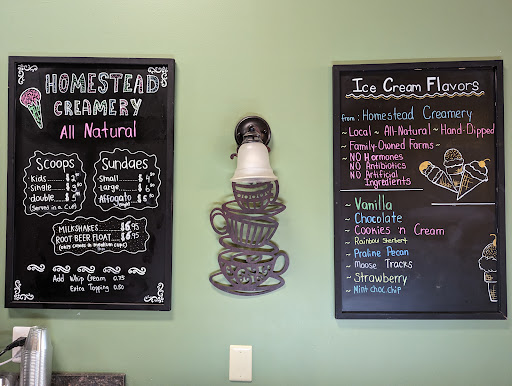 HOMESTEAD
CREAMERY
All Natural
Scoops
Kids
Single
double
(Served in a Cup)
Sundaes
Small
Large
Affogato
MILKSHAKES $6.95
ROOT BEER FLOAT $6.95
Add Whip Cream 0.75
Extra Topping 0.50
Ice Cream Flavors
from: Homestead Creamery
~ Local ~ All-Natural ~ Hand-Dipped
~ Family-Owned Farms ~
~ NO Hormones
NO Antibiotics
NO Artificial
Ingredients
~ Vanilla
~ Chocolate
~ Cookies n Cream
~ Rainbow Sherbert
~ Praline Pecan
~ Moose Tracks
~ Strawberry
~ Mint choc chip